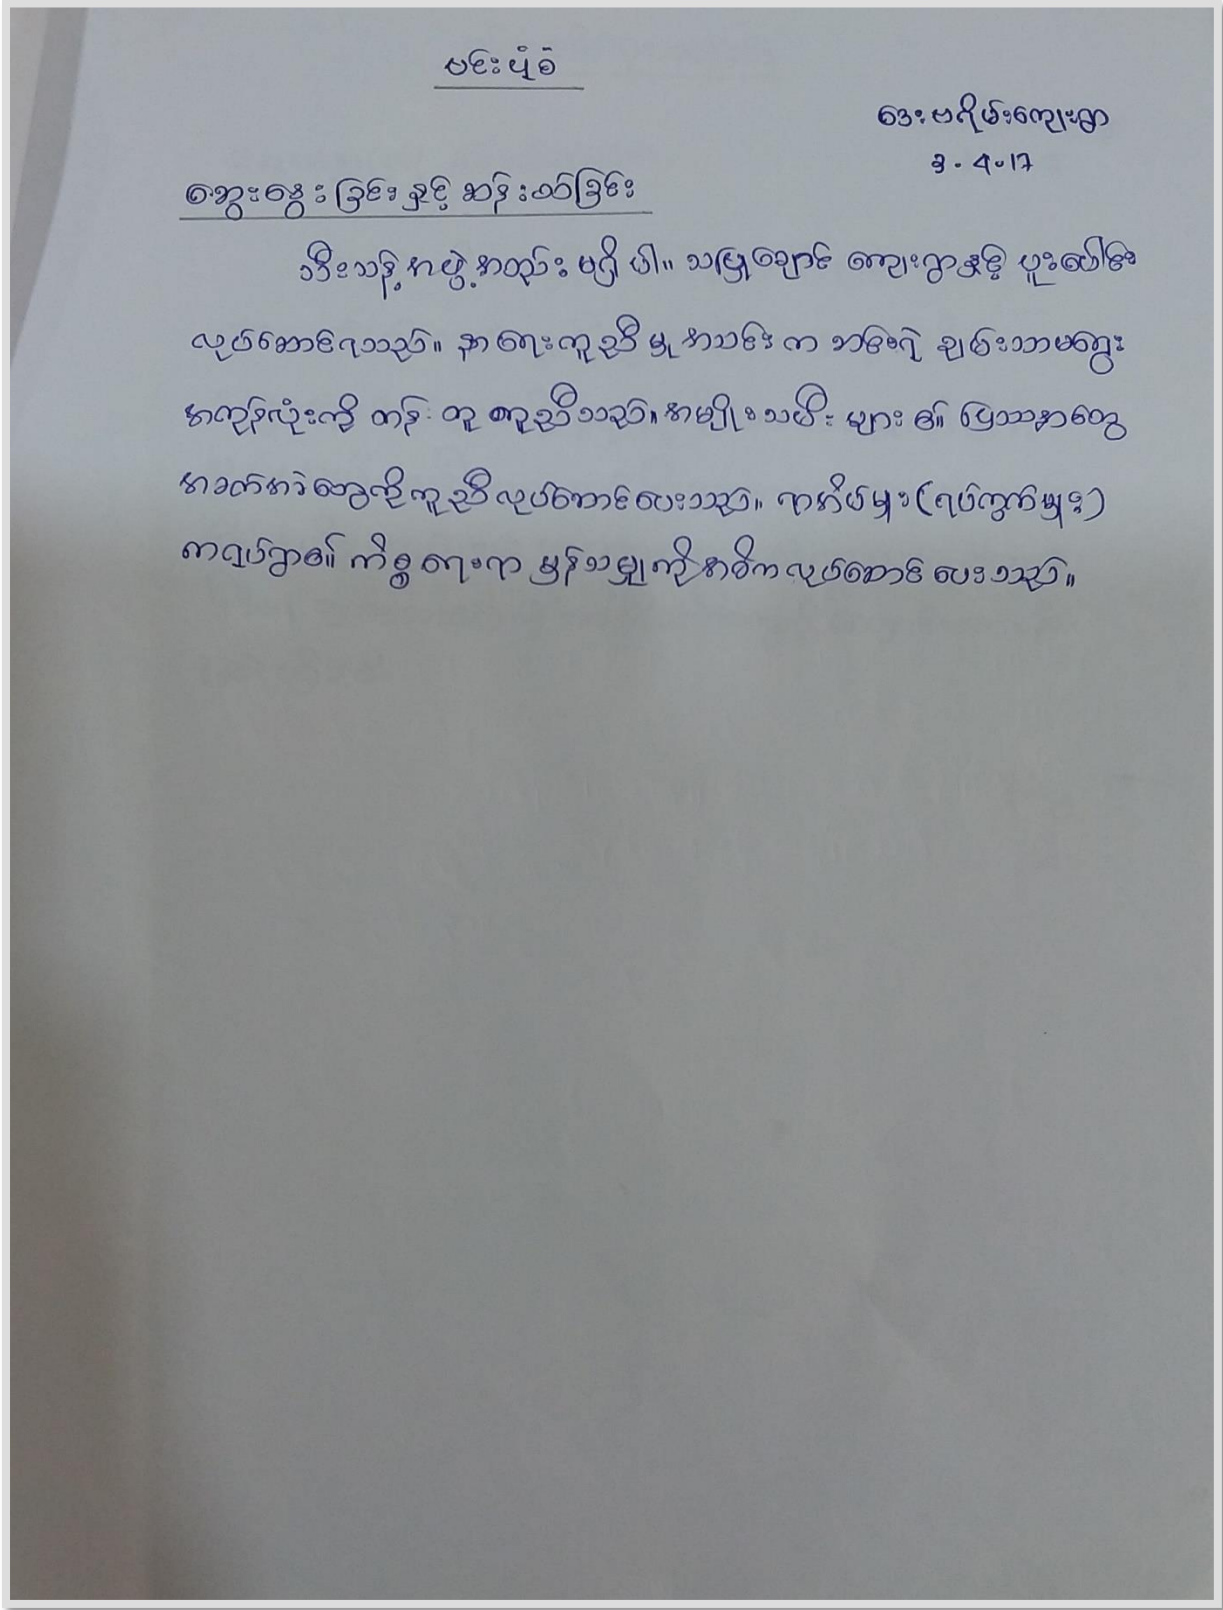 ဗင်းပုံစံ
ဒေးဗရိမ်းကျေးရွာ
3.4.17
ဆွေးနွေးခြင်းနှင့် ဆန်းစစ်ခြင်း
သီးသန့် အဖွဲ့အစည်း မရှိပါ။ သမြုချောင် ကျေးရွာနှင့် ပူးပေါင်း
လုပ်ဆောင်ရသည်။ နာရေးကူညီမှု အသင်းက ဆင်းရဲ ချမ်းသာမရွေး
အကုန်လုံးကို တန်းတူ ကူညီသည်။ အမျိုးသမီး များ၏ ပြဿနာတွေ
အခက်အခဲတွေကို ကူညီလုပ်ဆောင်ပေးသည်။ ရာအိမ်မှူး (ရပ်ကွက်မှူး)
က ရပ်ရွာ၏ ကိစ္စရေးရာ မှန်သမျှကို အဓိကလုပ်ဆောင်ပေးသည်။